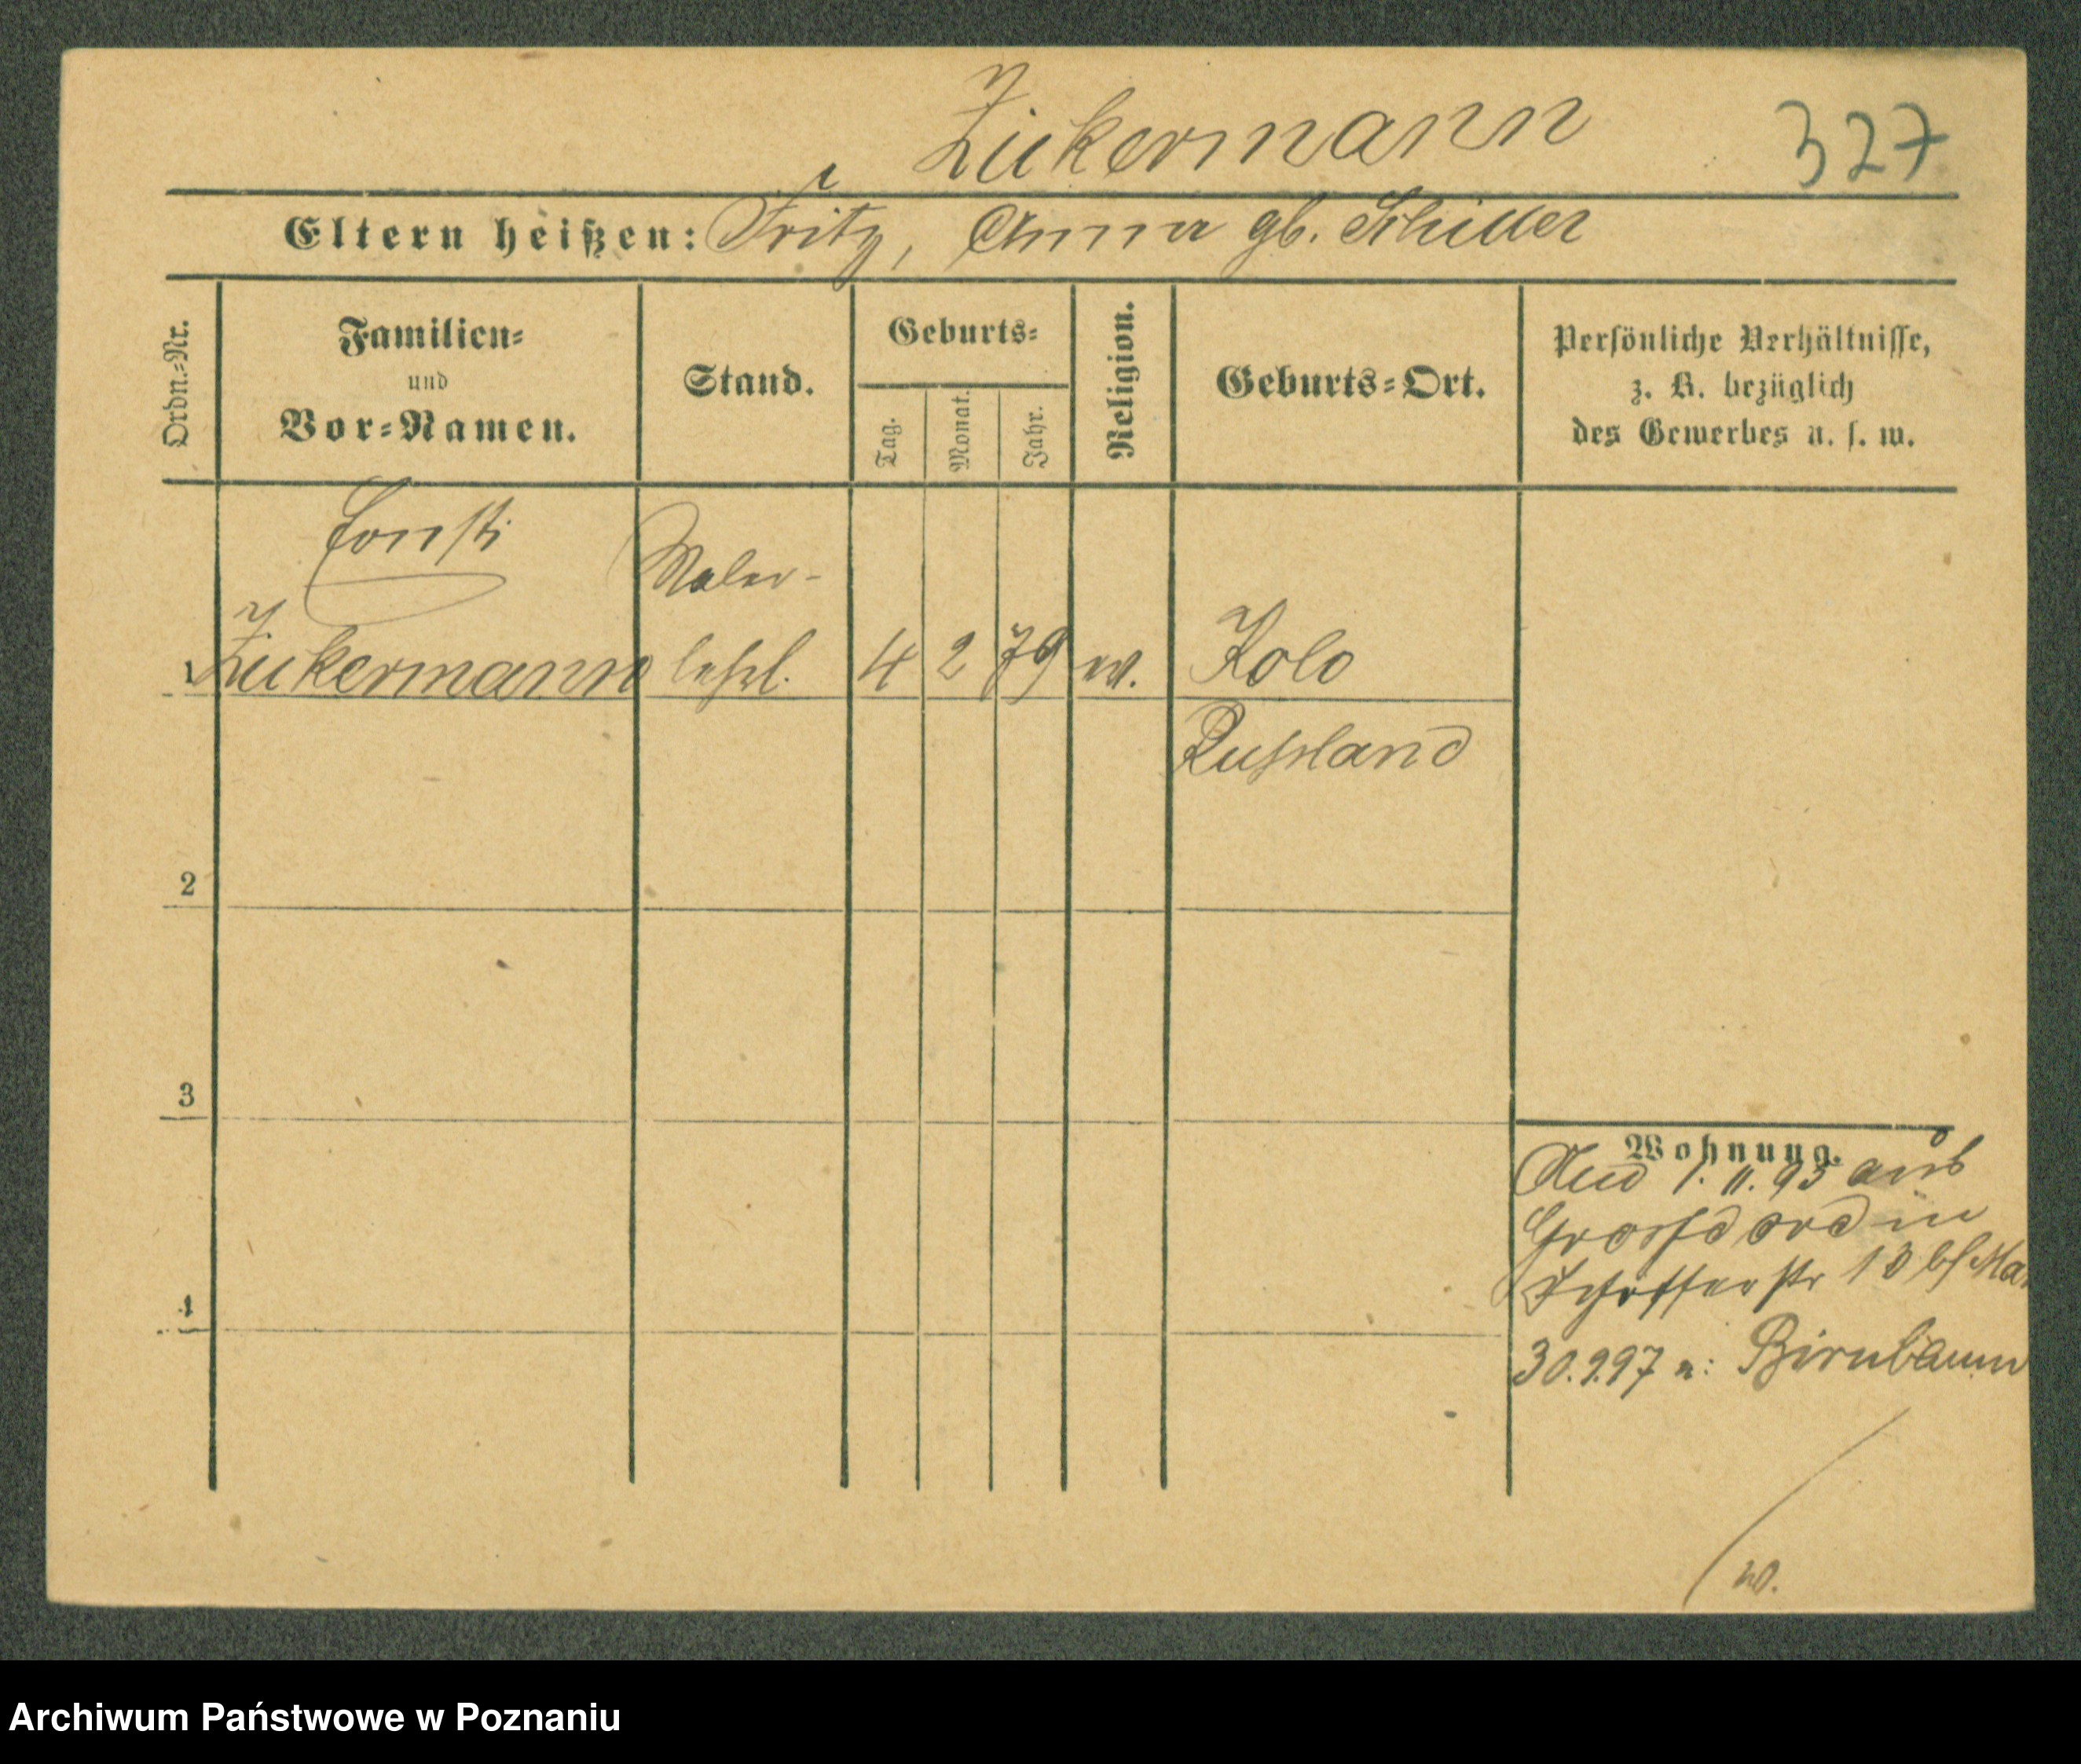 Zickermann 327
Eltern heißen: Fritz, Anna gb. Schiller
Ordn.-Nr.
Familien-
und
Vor-Namen.
Stand.
Geburts-
Tag.
Monat.
Jahr.
Religion.
Geburts-Ort.
Persönliche Verhältnisse,
z. B. bezüglich
des Gewerbes u. s. w.
Maler-
1 Zickermann lehrl. 4 2 79 Kolo
Russland
2
3
4
Wohnung.
1. 11. 95 aus
Grossdord in
13 b/
30.9.97 n: Birnbaum
w.
Archiwum Państwowe w Poznaniu